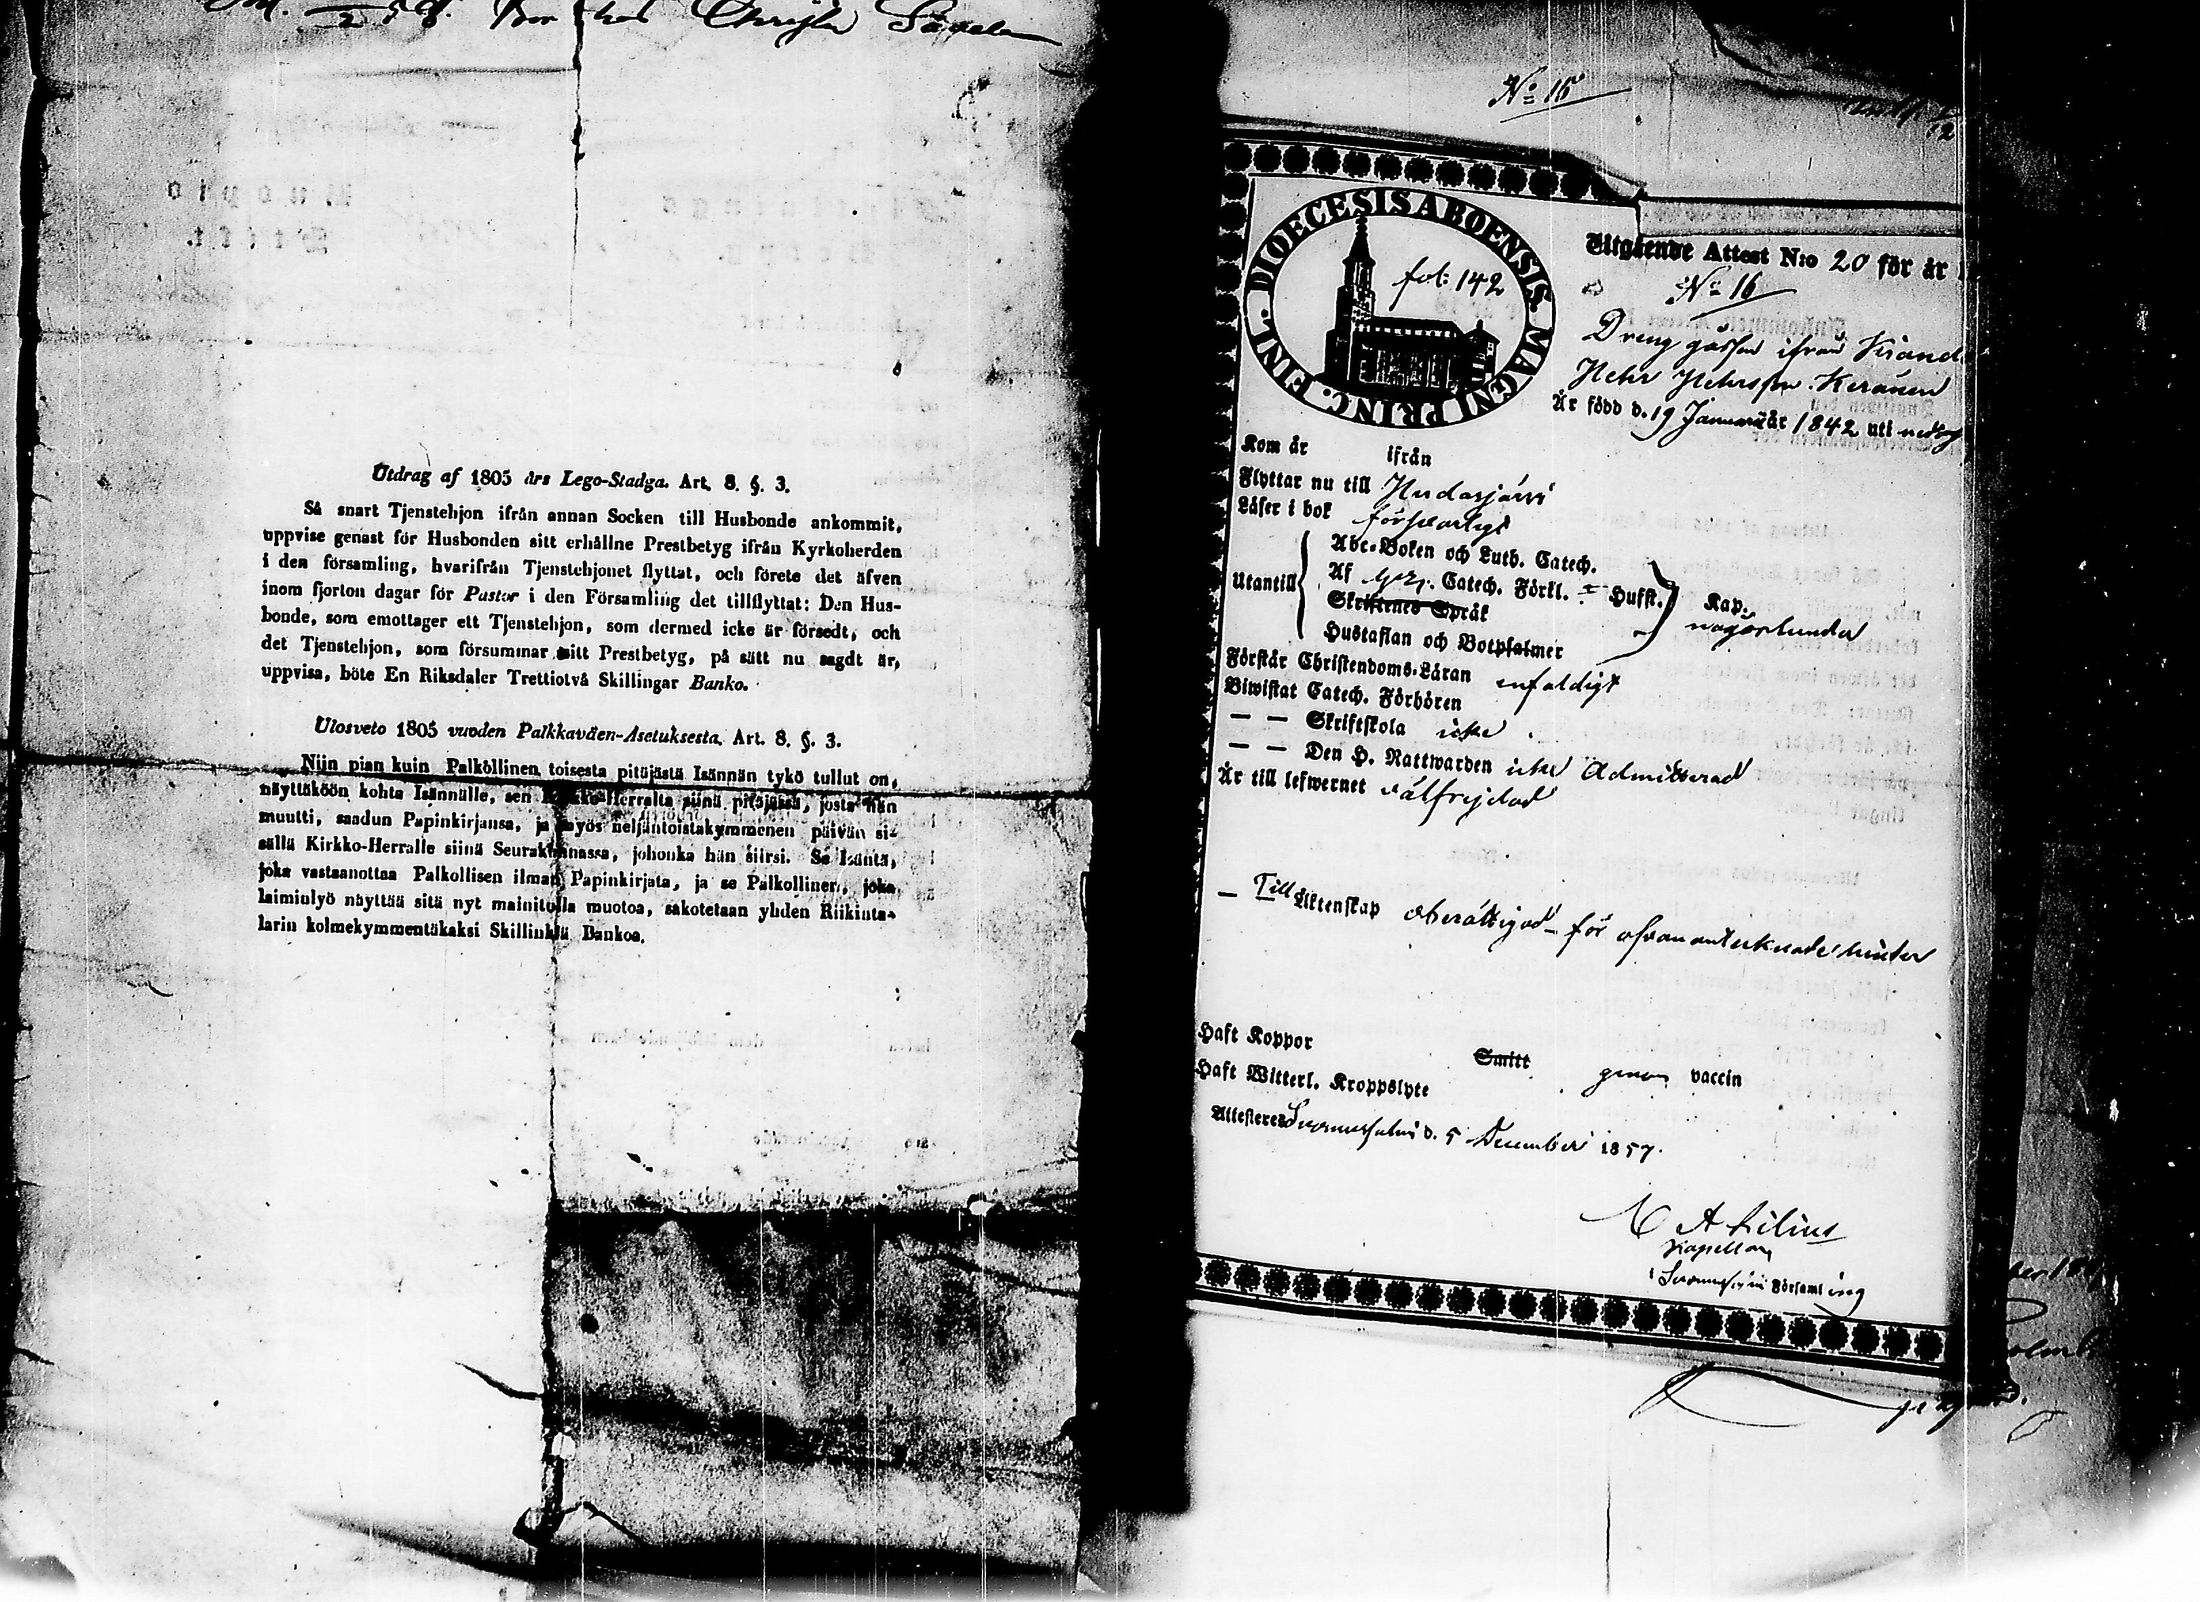 Utdrag af 1805 års Lego-Stadga. Art. 8. §. 3.
Så snart Tjenstehjon ifrån annan Socken till Husbonde ankommit,
uppvise genast för Husbonden sitt erhållne Prestbetyg ifrån Kyrkoherden
i den församling, hvarifrån Tjenstehjonet flyttat, och förete det äfven
inom fjorton dagar för Pastor i den Församling det tillflyttat: Den Hus-
bonde, som emottager ett Tjenstehjon, som dermed icke är försedt, och
det Tjenstehjon, som försummar sitt Prestbetyg, på sätt nu sagdt är,
uppvisa, böte En Riksdaler Trettiotvå Skillingar Banko.
Ulosveto 1805 vuoden Palkkaväen-Asetuksesta. Art. 8. §. 3.
Niin pian kuin Palkollinen toisesta pitäjästä Isännän tykö tullut on,
näyttäköön kohta Isännälle, sen Kirkko-Herralta siinä pitäjässä, josta hän
muutti, saadun Papinkirjansa, ja myös neljäntoistakymmenen päivän si-
sällä Kirkko-Herralle siinä Seurakunnassa, johonka hän siirsi. Se Isäntä,
joka vastaanottaa Palkollisen ilman Papinkirjata, ja se Palkollinen, joka
laiminlyö näyttää sitä nyt mainitulla muotoa, sakotetaan yhden Riikinta-
larin kolmekymmentäkaksi Skillinkiä Bankoa.
No 16
DIOECESIS ABOENSIS. MAGNI PRINC. FINL.
fol: 142
Utgående Attest N:o 20 för år
No 16
Dreng gossen ifrån
Petter Pettersson Keränen
Är född d. 19 Januarii år 1842 uti
Kom år ifrån
Flyttar nu till Pudasjärvi
Läser i bok försvarligt
Abc-Boken och Luth. Catech.
Utantill Af Catech. Förkl. Husst. Kap.
Skriftenes Språk någorlunda
Hustaflan och Botpsalmer
Förstår Christendoms-Läran enfaldigt
Biwistat Catech. Förhören
— — Skriftskola icke
— — Den H. Nattwarden icke Admitterad
Är till lefwernet välfrejdad
— Till Äktenskap oberättigad för ofvanantecknade hinder
Haft Koppor Smitt genom vaccin
Haft Witterl. Kroppslyte
Attesteres Suomussalmi d. 5 December 1857.
Kapellan
i Suomussalmi Församling